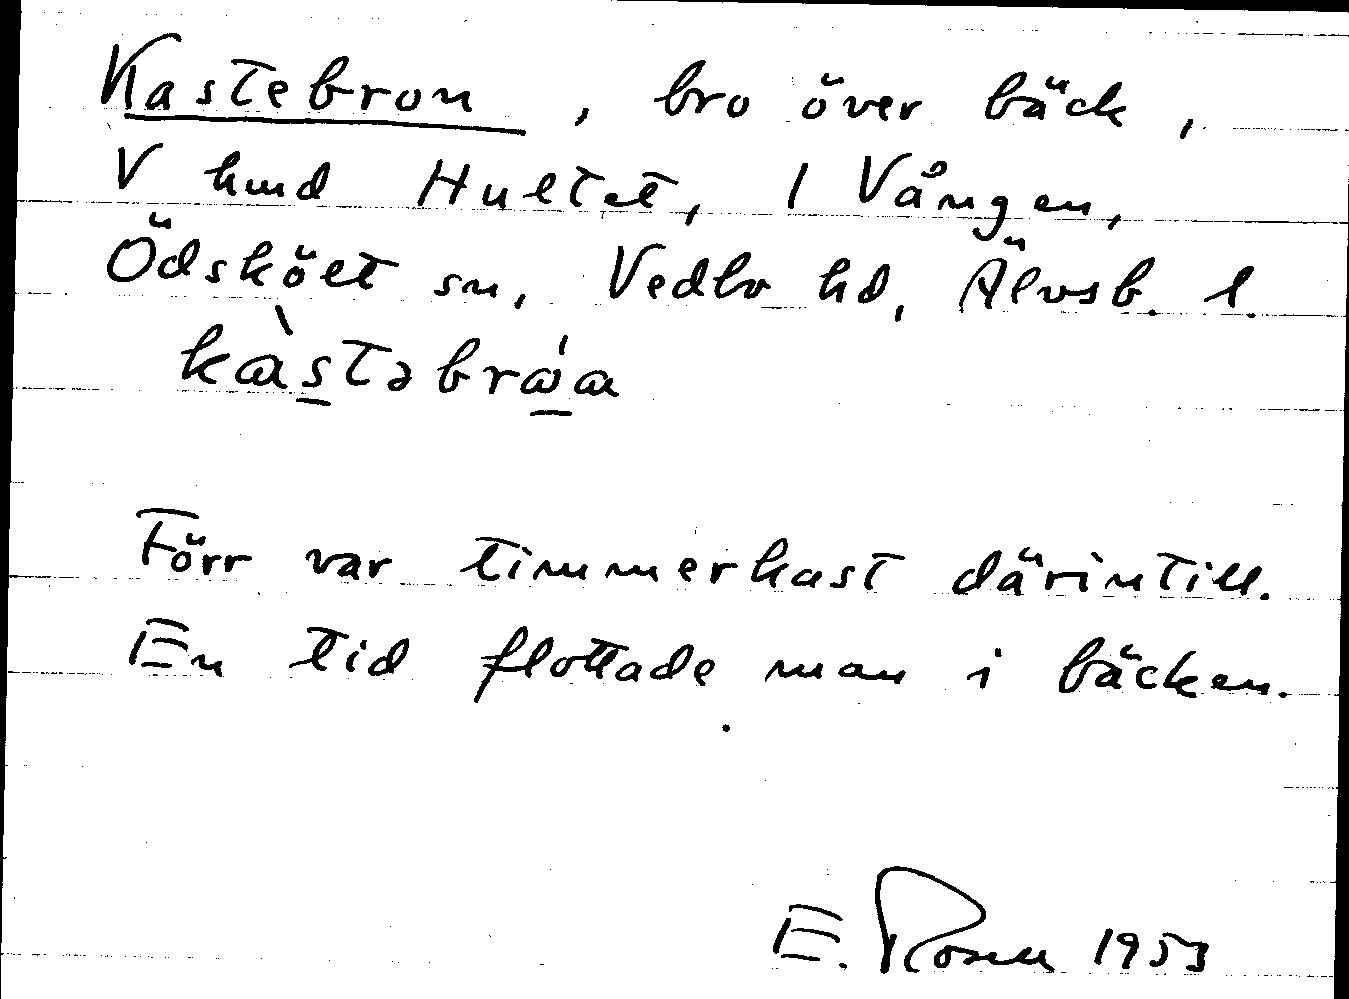 Kastebron, bro över bäck,
V hmd Hultet, 1 Vången,
Ödskölt sn, Vedbo hd, Älvsb. l.
Förr var timmerkast därintill.
En tid flottade man i bäcken.
E. Rosell 1953